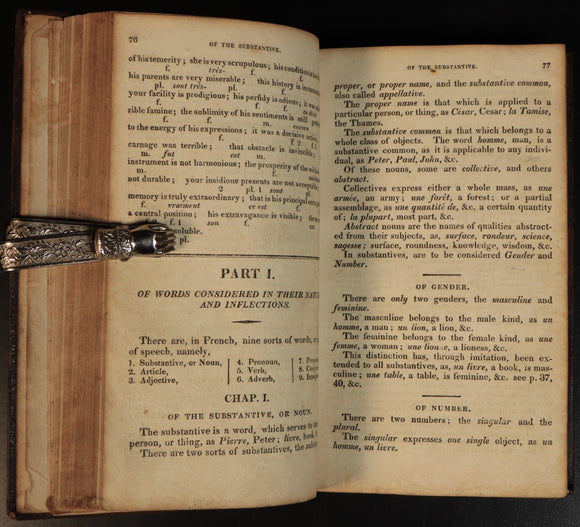 76
OF THE SUBSTANTIVE.
of his temerity; she is very scrupulous; his condition is
f. très- f. f.
his parents are very miserable; this history is
pl. sont très- pl. f.
your facility is prodigious; his perfidy is odious; it was
f. f. f.
rible famine; the sublimity of his sentiments is still
f. f. m. encore
to the energy of his expressions; it was a decisive action
f. f. 2 f. 1
carnage was terrible; that obstacle is invincible;
m. fut cet m.
instrument is not harmonious; the prosperity of the wicked
m.
not durable; your insidious presents are not acceptable;
2 pl. 1 sont pl.
memory is truly extraordinary; that is his principal
f. vraiment ce est f.
a central position; his extravagance is visible;
2 f. 1 son f.
soluble.
pl.
PART I.
OF WORDS CONSIDERED IN THEIR
AND INFLECTIONS.
There are, in French, nine sorts of words, or
of speech, namely,
1. Substantive, or Noun, 4. Pronoun, 7.
2. Article, 5. Verb, 8.
3. Adjective, 6. Adverb, 9.
CHAP. I.
OF THE SUBSTANTIVE, OR NOUN.
The substantive is a word, which serves to
person, or thing, as Pierre, Peter; livre, book.
There are two sorts of substantives, the
OF THE SUBSTANTIVE.
77
proper, or proper name, and the substantive common,
also called appellative.
The proper name is that which is applied to a
particular person, or thing, as César, Cesar; la Tamise,
the Thames.
The substantive common is that which belongs to a
whole class of objects. The word homme, man, is a
substantive common, as it is applicable to any indivi-
dual, as Peter, Paul, John, &c.
Of these nouns, some are collective, and others
abstract.
Collectives express either a whole mass, as une
armée, an army; une forêt, a forest; or a partial
assemblage, as une quantité de, &c. a certain quantity
of; la plupart, most part, &c.
Abstract nouns are the names of qualities abstract-
ed from their subjects, as, surface, rondeur, science,
sagesse: surface, roundness, knowledge, wisdom, &c.
In substantives, are to be considered Gender and
Number.
OF GENDER.
There are only two genders, the masculine and
feminine.
The masculine belongs to the male kind, as un
homme, a man; un lion, a lion, &c.
The feminine belongs to the female kind, as une
femme, a woman; une lionne, a lioness, &c.
This distinction has, through imitation, been ex-
tended to all substantives, as, un livre, a book, is mas-
culine; une table, a table, is feminine, &c. see p. 37,
40, &c.
OF NUMBER.
There are two numbers; the singular and the
plural.
The singular expresses one single object, as un
homme, un livre.